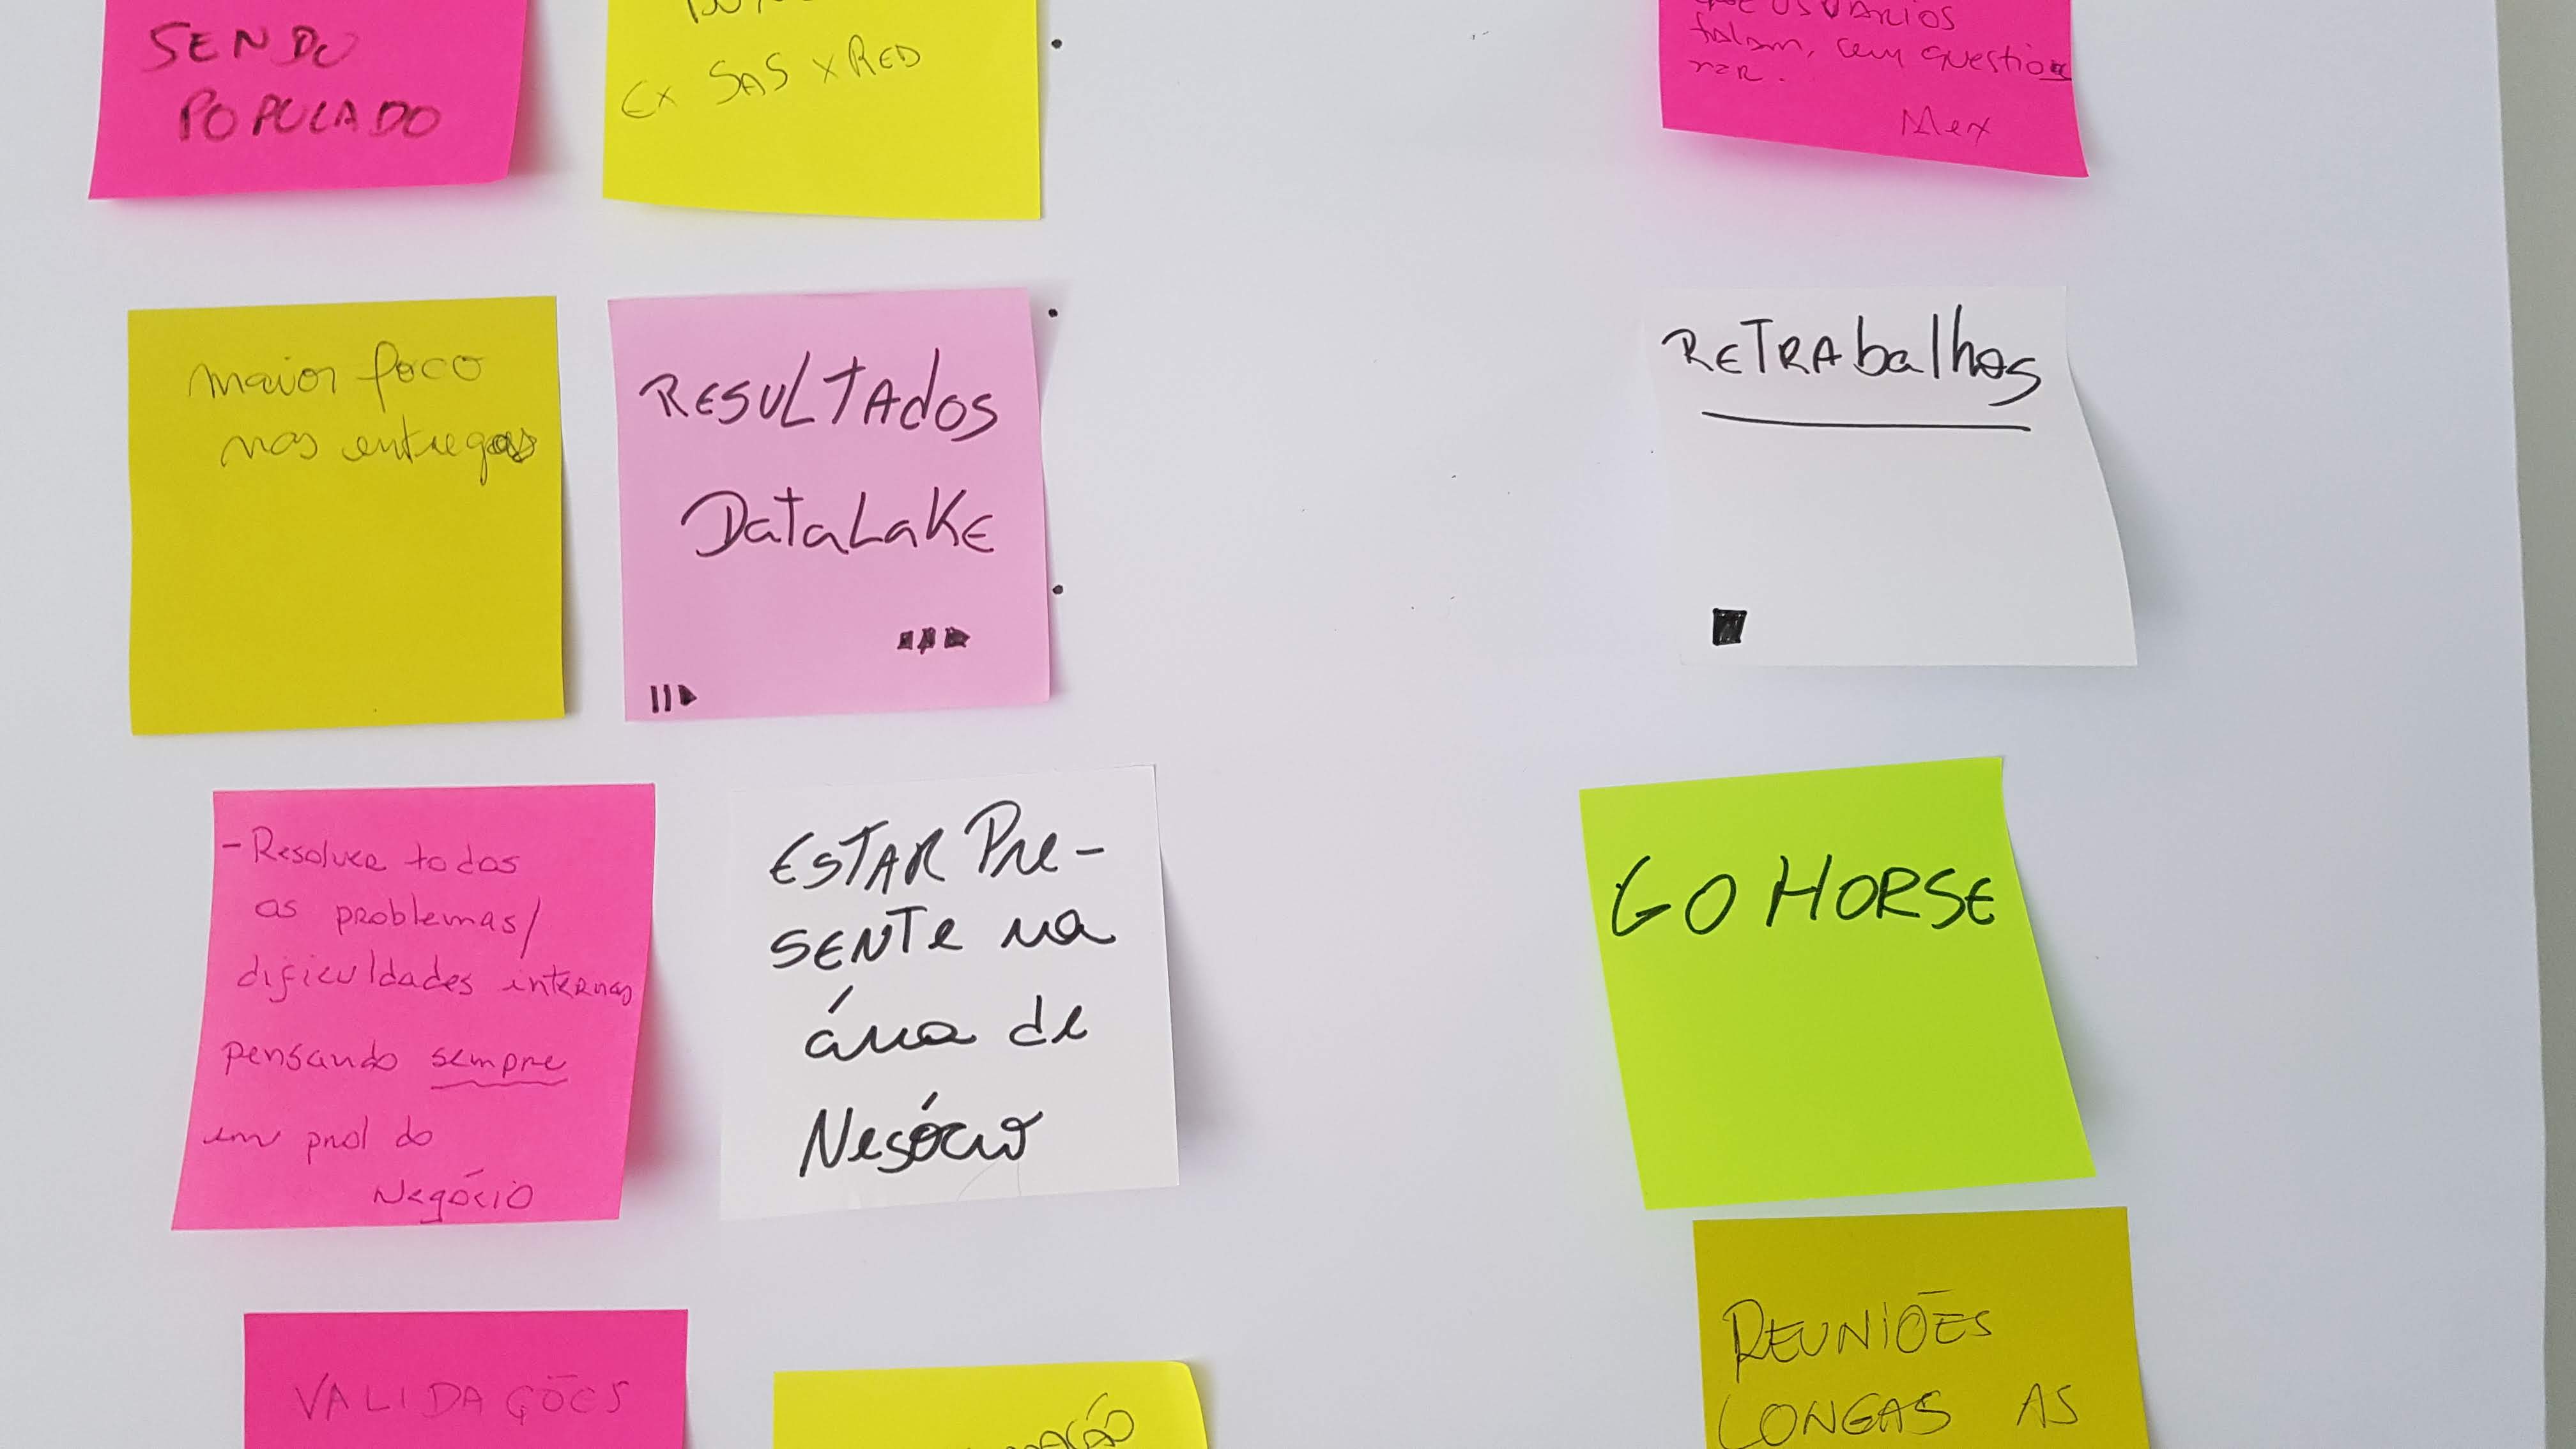 SENDO
POPULADO
Ex SAS x RED
USUÁRIOS
falam, sem questio
nar.
maior foco
nas entregas
RESULTADOS
DataLake
RETRAbalhos
- Resolver todos
os problemas/
dificuldades internas
pensando sempre
em prol do
Negócio
ESTAR Pre-
SENTe na
área de
Negócio
GO HORSE
VALIDAÇÕES
REUNIÕES
LONGAS AS